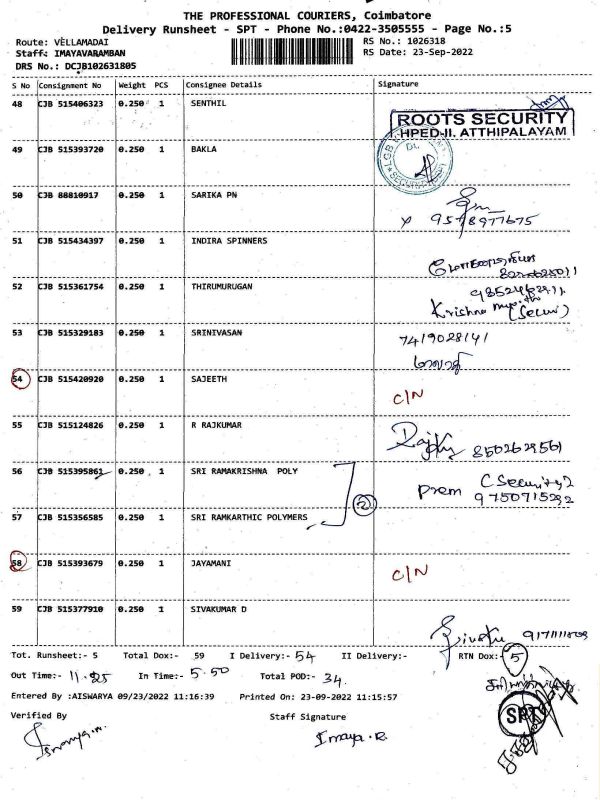 THE PROFESSIONAL COURIERS, Coimbatore
Delivery Runsheet - SPT - Phone No.:0422-3505555 - Page No.:5
Route: VELLAMADAI
RS No.: 1026318
Staff: IMAYAVARAMBAN
RS Date: 23-Sep-2022
DRS No.: DCJB102631805
S No Consignment No Weight PCS Consignee Details Signature
48 CJB 515406323 0.250 1 SENTHIL
ROOTS SECURITY
HPED-II. ATTHIPALAYAM
49 CJB 515393720 0.250 1 BAKLA
50 CJB 88810917 0.250 1 SARIKA PN
51 CJB 515434397 0.250 1 INDIRA SPINNERS
52 CJB 515361754 0.250 1 THIRUMURUGAN
Krishna
53 CJB 515329183 0.250 1 SRINIVASAN
7419028141
54 CJB 515420920 0.250 1 SAJEETH
C/N
55 CJB 515124826 0.250 1 R RAJKUMAR
8502629561
56 CJB 515395861 0.250 1 SRI RAMAKRISHNA POLY
2
Prem
57 CJB 515356585 0.250 1 SRI RAMKARTHIC POLYMERS
58 CJB 515393679 0.250 1 JAYAMANI
C/N
59 CJB 515377910 0.250 1 SIVAKUMAR D
Tot. Runsheet:- 5 Total Dox:- 59 I Delivery:- 54 II Delivery:- RTN Dox:- 5
Out Time:- In Time:- 5.50 Total POD:- 34
Entered By :AISWARYA 09/23/2022 11:16:39 Printed On: 23-09-2022 11:15:57
Verified By Staff Signature
SPT
Imaya.R.